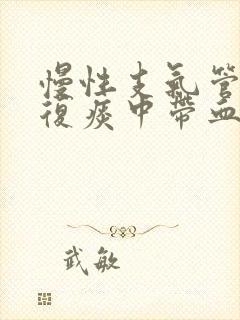 慢性支氣管
復痰中帶血
武敏